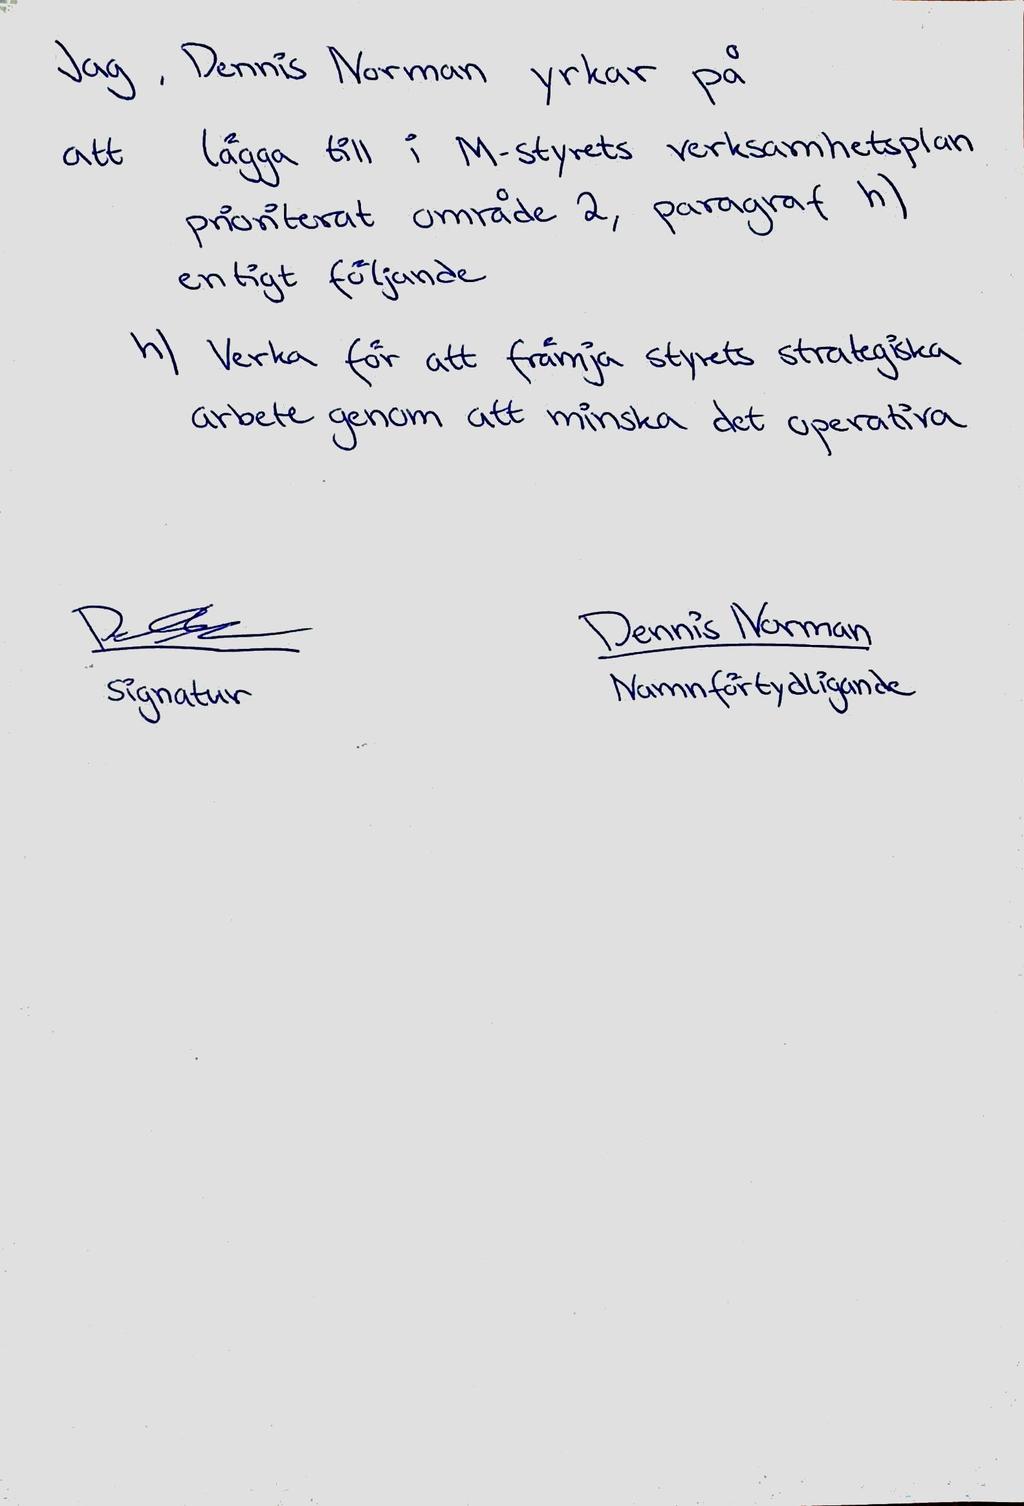 Jag, Dennis Norman yrkar på
att lägga till i M-styrets verksamhetsplan
prioriterat område 2, paragraf h)
enligt följande
h) Verka för att främja styrets strategiska
arbete genom att minska det operativa
Dennis Norman
Signatur Namnförtydligande